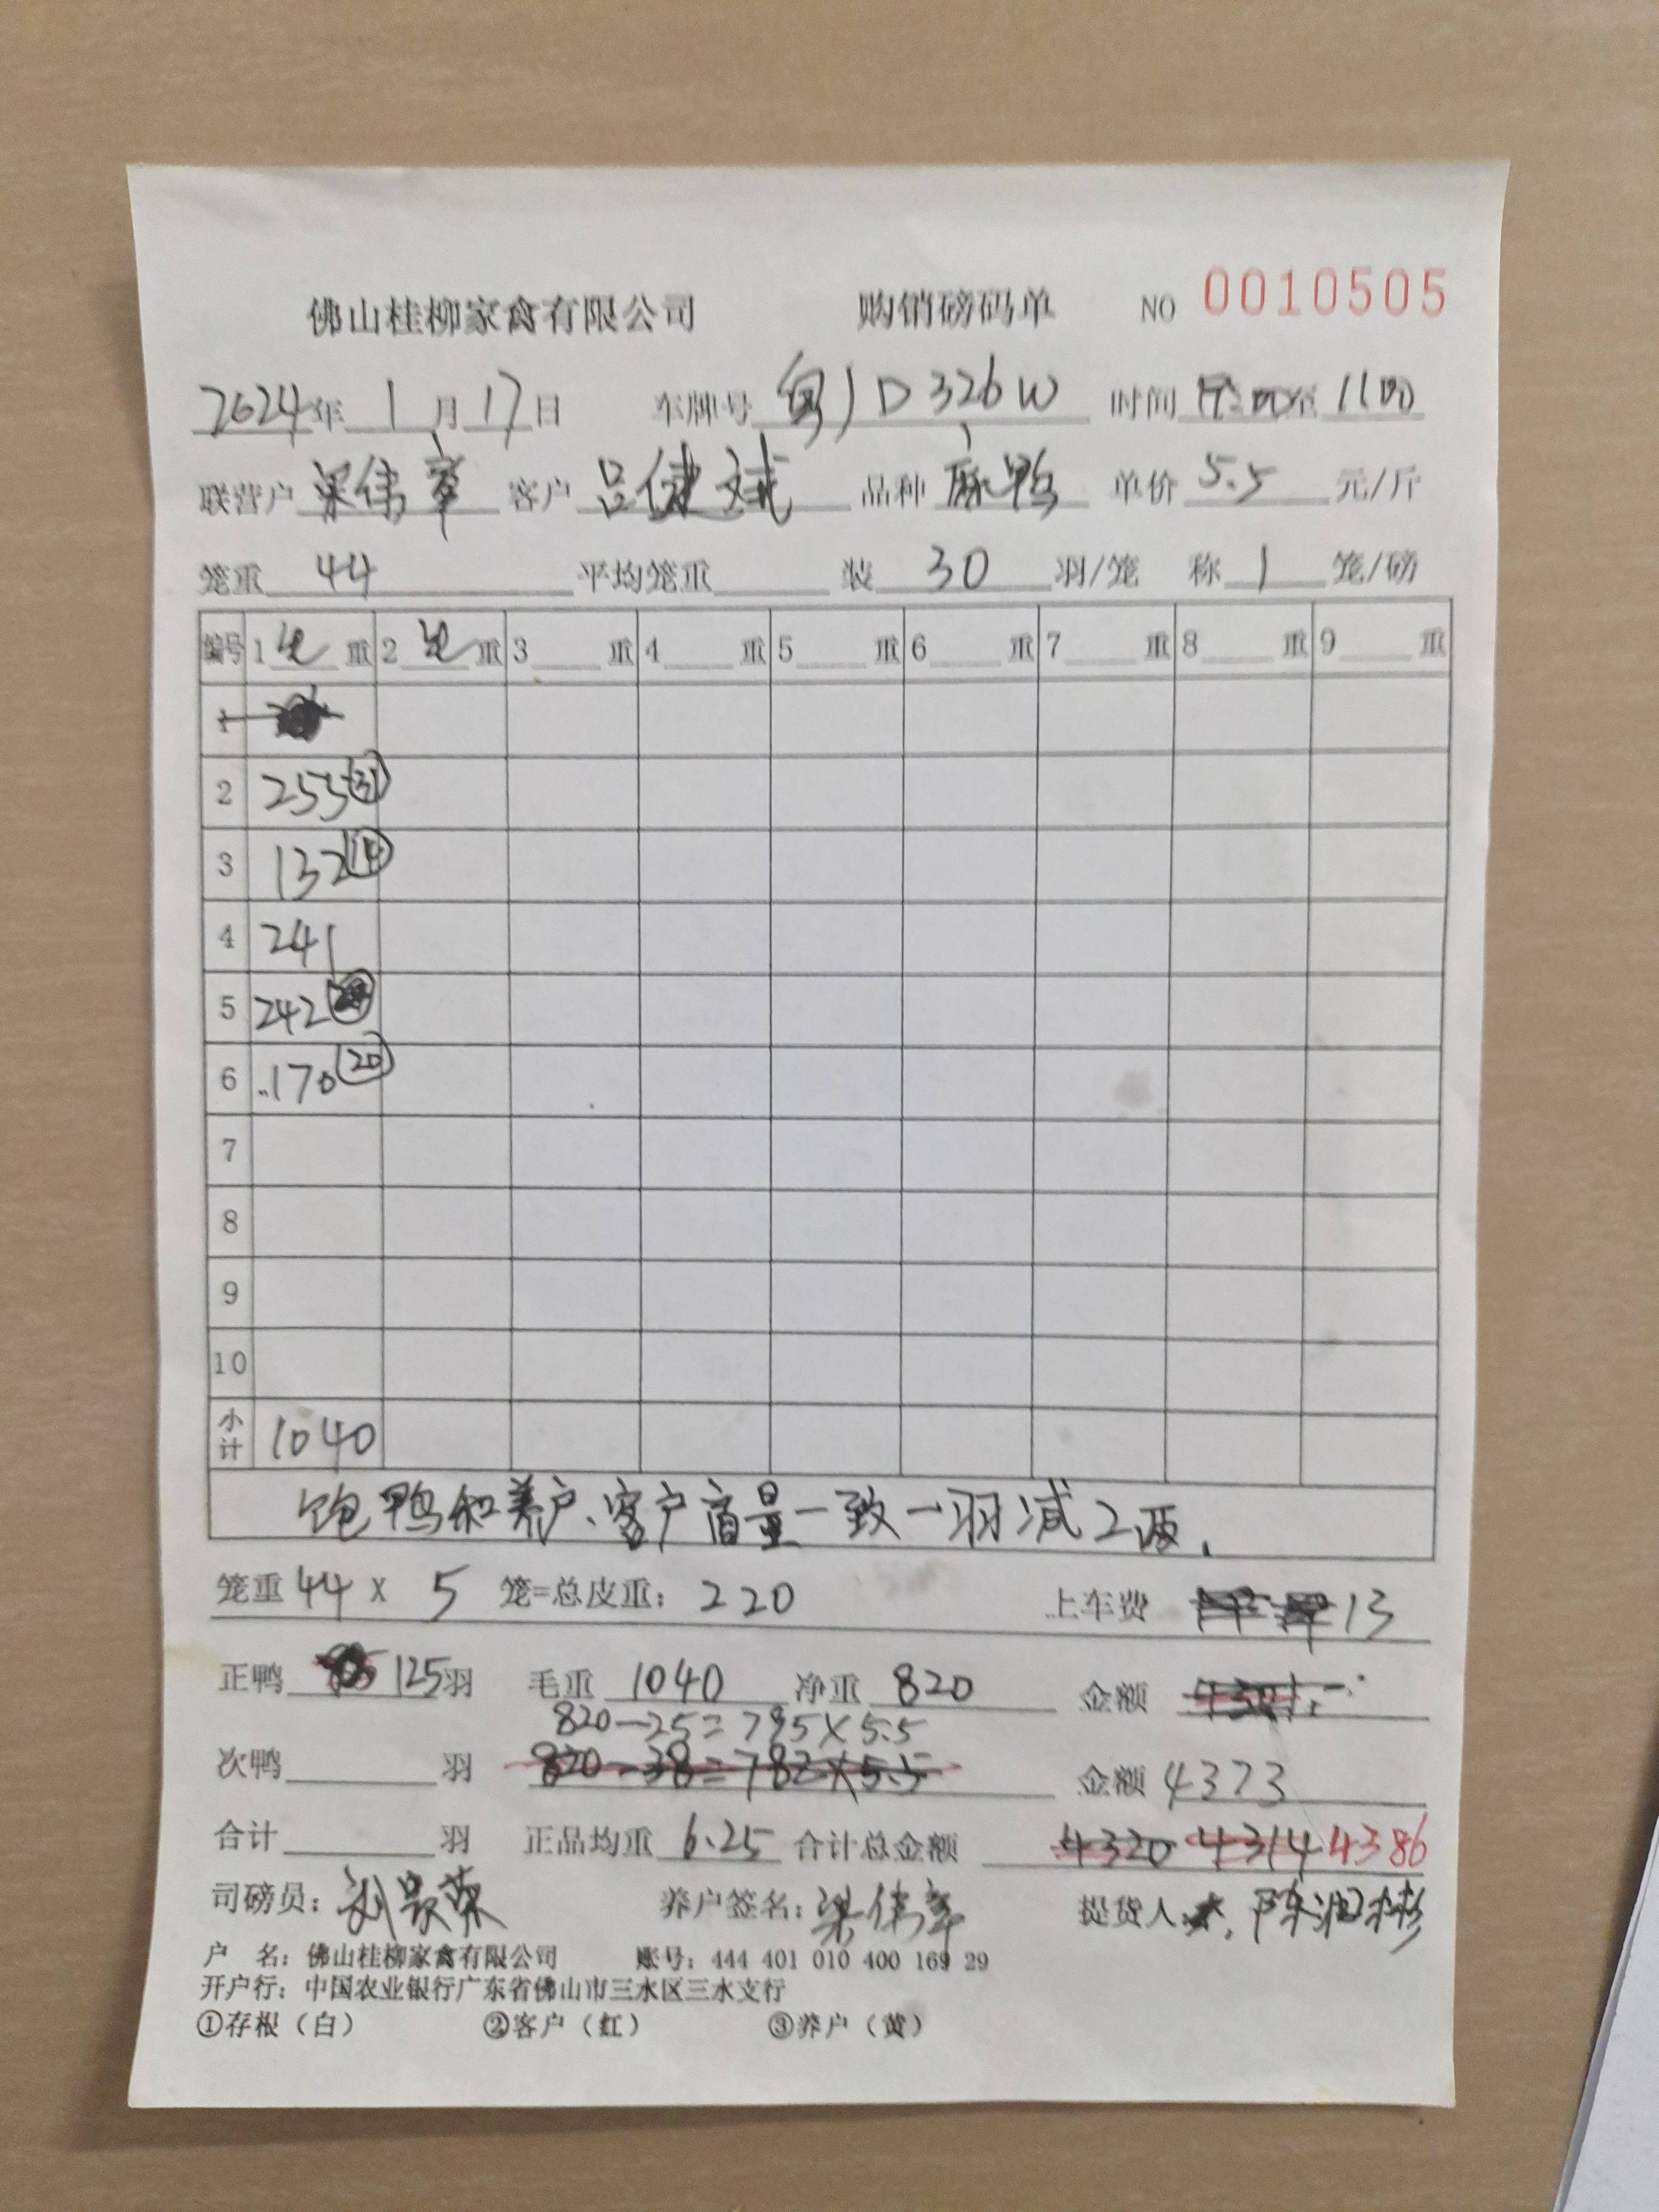 佛山桂柳家禽有限公司 购销磅码单 NO 0010505
2024年 1 月 17 日 车牌号 粤J D326W 时间 至 1100
联营户 梁伟章 客户 吕健斌 品种 麻鸭 单价 5.5 元/斤
笼重 44 平均笼重 装 30 羽/笼 称 1 笼/磅
编号 1 毛 重 2 毛 重 3 重 4 重 5 重 6 重 7 重 8 重 9 重
1
2 255 (31)
3 132 (14)
4 241
5 242
6 170 (20)
7
8
9
10
小计 1040
饱鸭和养户、客户商量一致一羽减2两.
笼重 44 X 5 笼=总皮重: 220 上车费 13
正鸭 125 羽 毛重 1040 净重 820 金额
820-25=795×5.5
次鸭 羽 820-38=782×5.5 金额 4373
合计 羽 正品均重 6.25 合计总金额 4320 4314 4386
司磅员: 养户签名: 梁伟章 提货人
户 名: 佛山桂柳家禽有限公司 账号: 444 401 010 400 169 29
开户行: 中国农业银行广东省佛山市三水区三水支行
①存根（白） ②客户（红） ③养户（黄）